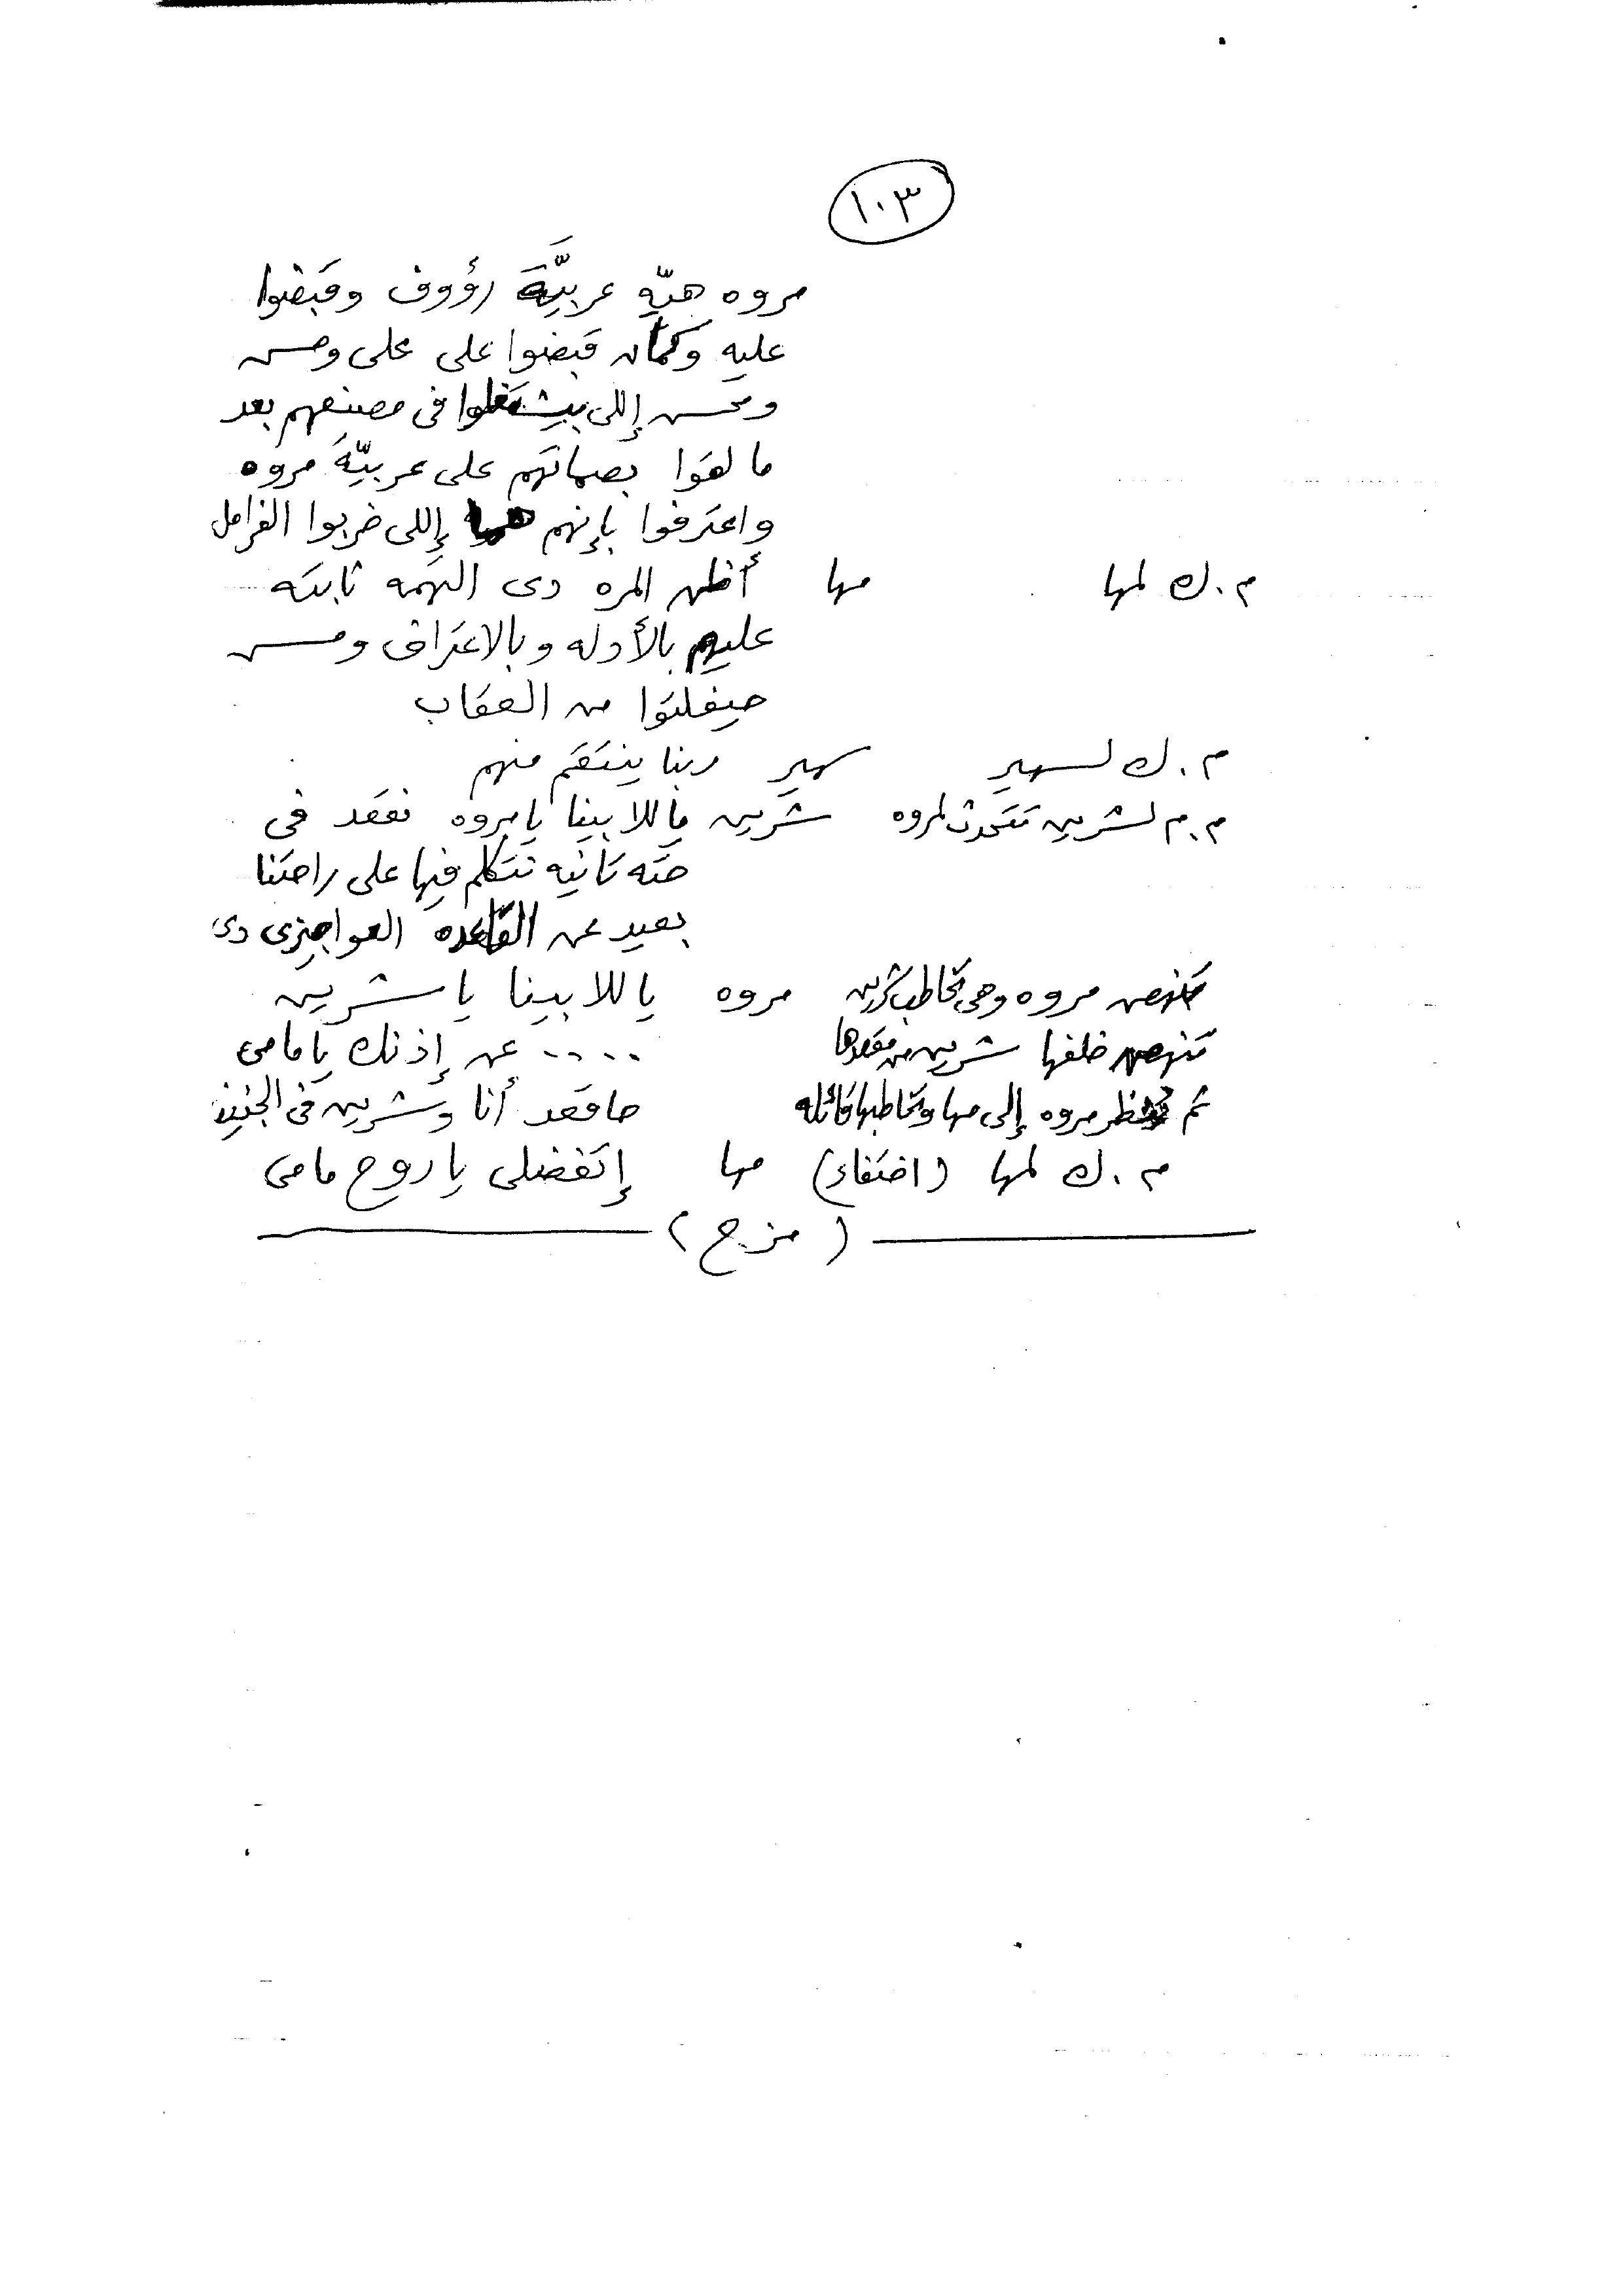 ١٠٣
مروه هيّه عربيَّة رؤوف وقبضوا
عليه وكمان قبضوا على على وحسن
ومحسن إللى بيشتغلوا فى مصنعهم بعد
ما لقوا بصماتهم على عربيّة مروه
واعترفوا بإنهم هما إللى ضربوا الفرامل
م . ك لمها مها أظن المره دى التهمه ثابته
عليهم بالأدله وبالاعتراف ومش
حيفلتوا من العقاب
م . ك لسهير سهير ربنا ينتقم منهم
م . م لشرين تتحدث لمروه شرين ياللا بينا يا مروه نقعد فى
حته تانيه نتكلم فيها على راحتنا
بعيد عن القاعده العواجيزى دى
تنهض مروه وهى تخاطب شرين مروه ياللا بينا يا شرين
تنهض خلفها شرين من مقعدها .... عن إذنك يا مامى
ثم تنظر مروه إلى مها وتخاطبها قائله حاقعد أنا وشرين فى الجنينه
م . ك لمها (اختفاء) مها إتفضلى يا روح مامى
( مزج )